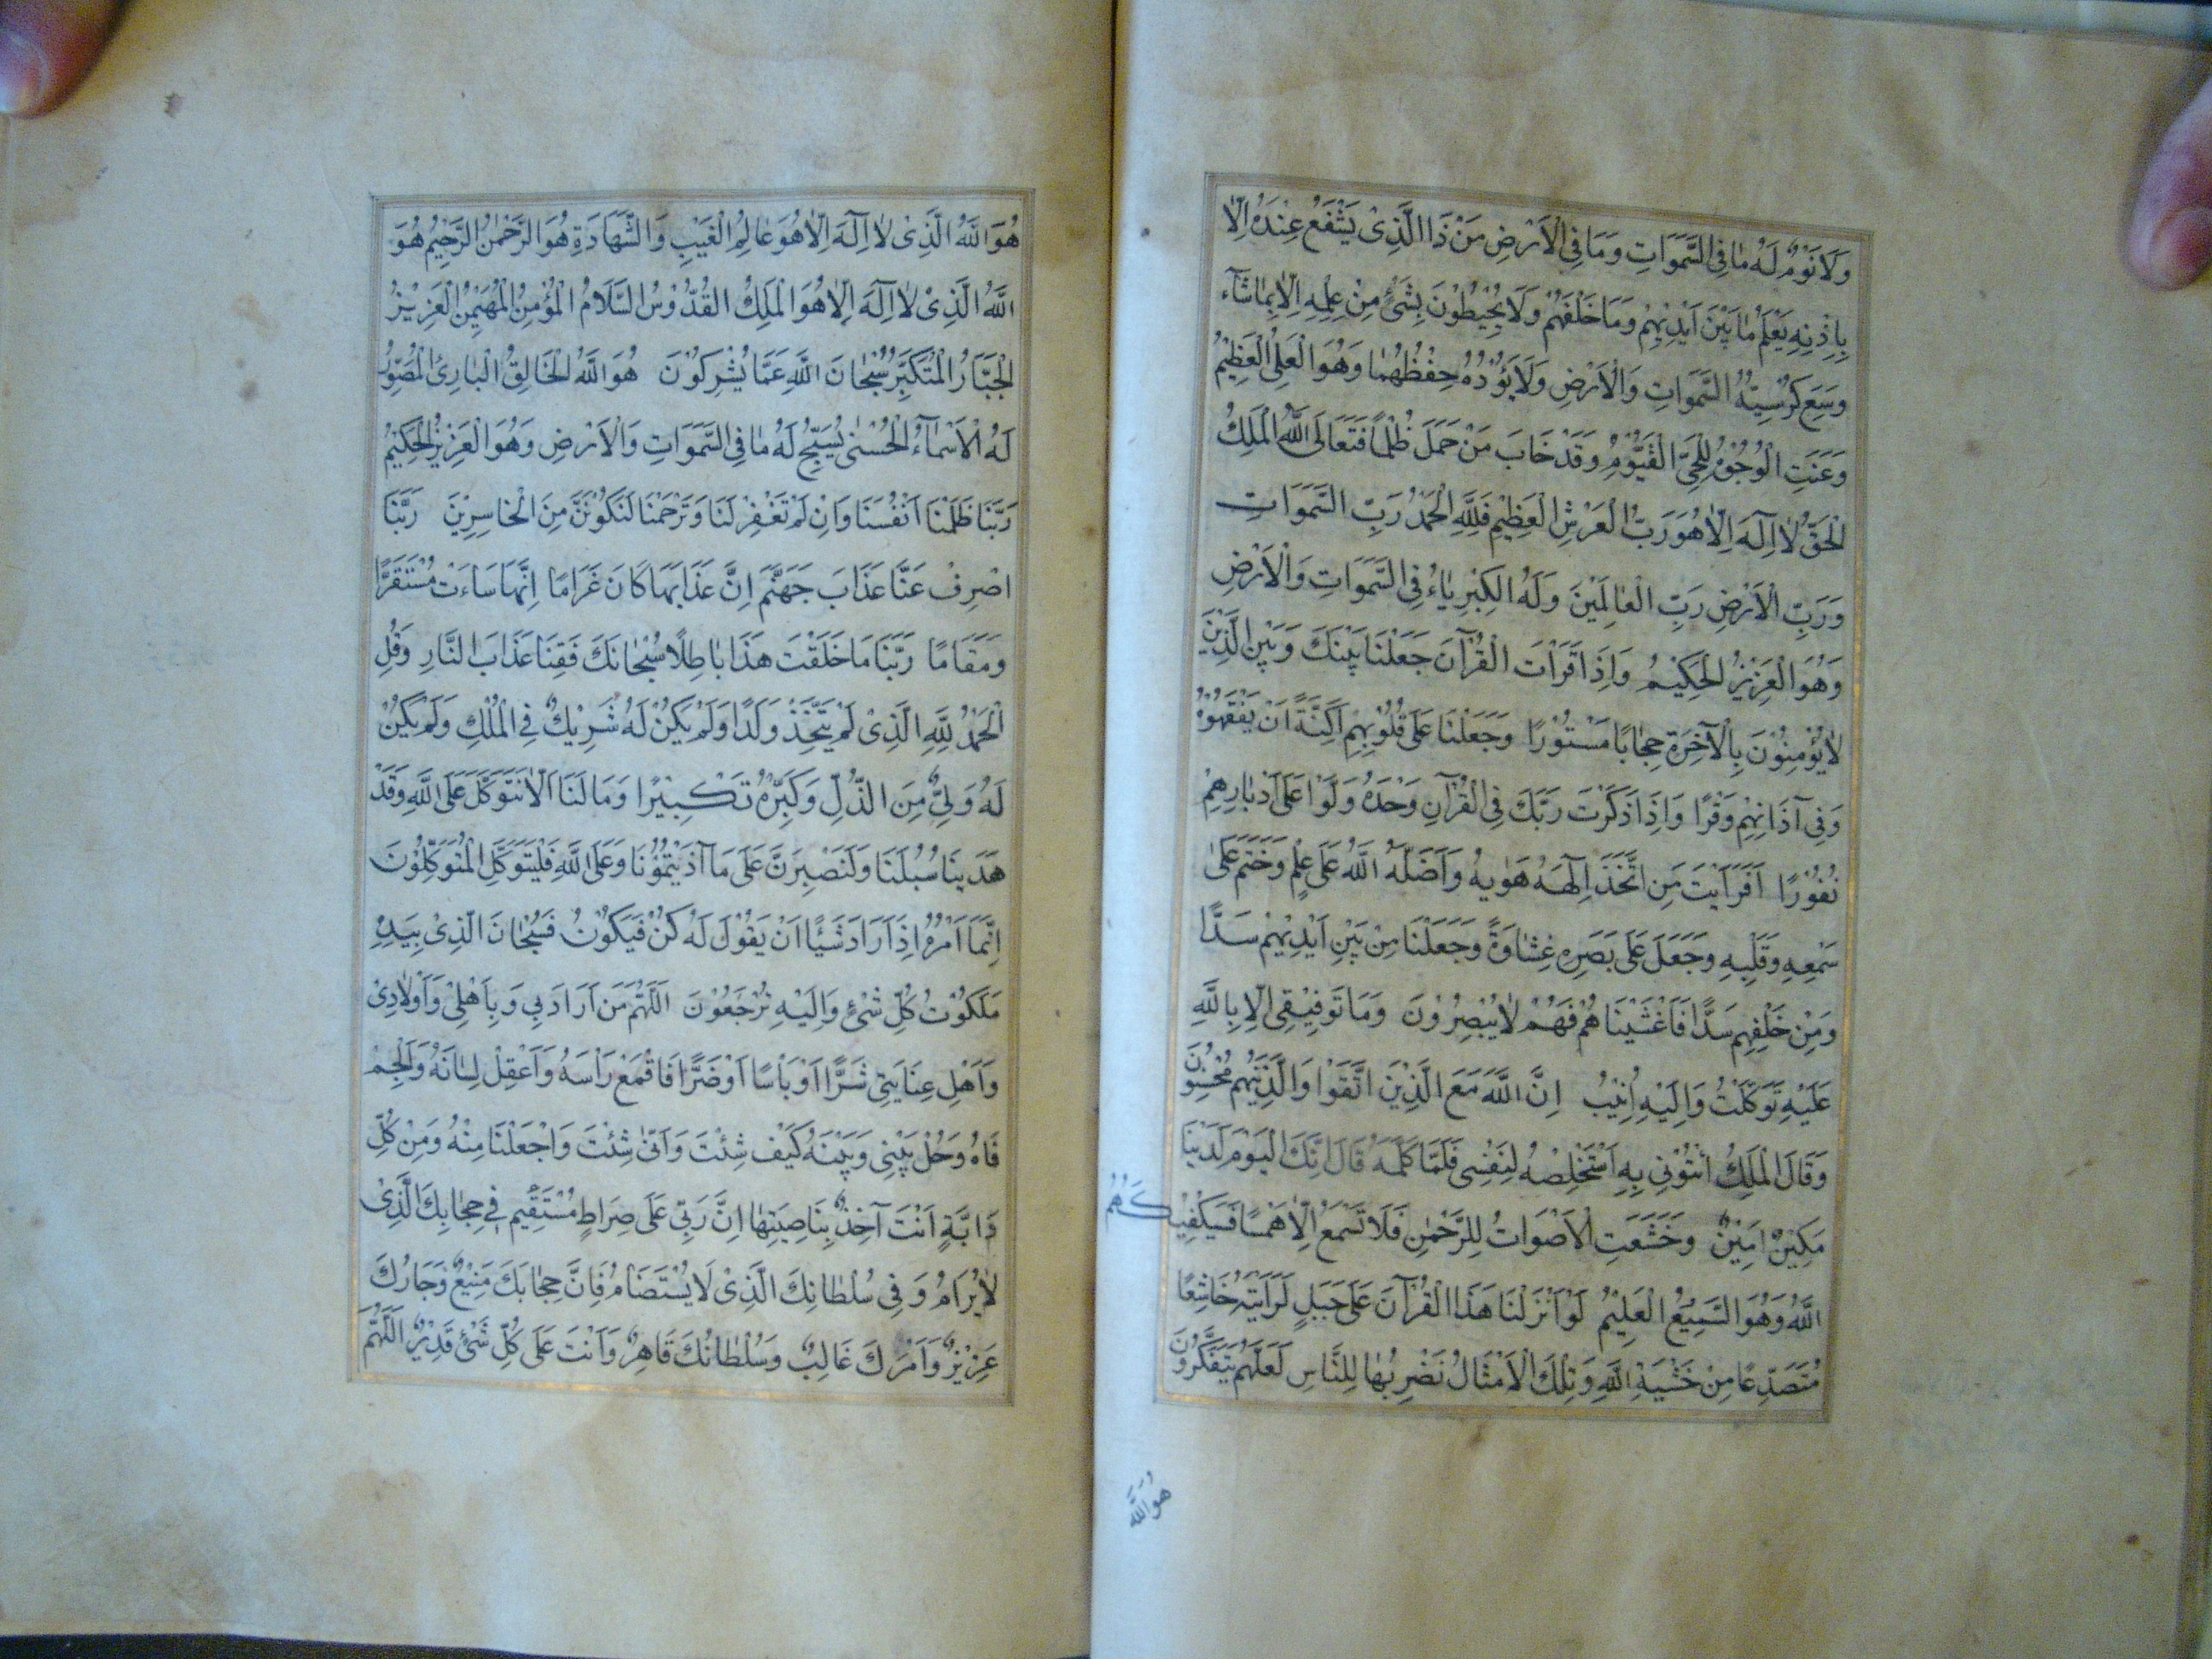 وَلَا نَوْمٌ لَهُ مَا فِي السَّمَوَاتِ وَمَا فِي الْاَرْضِ مَنْ ذَا الَّذِىْ يَشْفَعُ عِنْدَهُ اِلَّا
بِاِذْنِهِ يَعْلَمُ مَا بَيْنَ اَيْدِيْهِمْ وَمَا خَلْفَهُمْ وَلَا يُحِيْطُوْنَ بِشَىْءٍ مِنْ عِلْمِهِ اِلَّا بِمَا شَآءَ
وَسِعَ كُرْسِيُّهُ السَّمَوَاتِ وَالْاَرْضِ وَلَا يَؤُدُهُ حِفْظُهُمَا وَهُوَ الْعَلِىُّ الْعَظِيْمُ
وَعَنَتِ الْوُجُوْهُ لِلْحَىِّ الْقَيُّوْمِ وَقَدْ خَابَ مَنْ حَمَلَ ظُلْمًا فَتَعَالَى اللَّهُ الْمَلِكُ
الْحَقُّ لَا اِلَهَ اِلَّا هُوَ رَبُّ الْعَرْشِ الْعَظِيْمِ فَلِلَّهِ الْحَمْدُ رَبِّ السَّمَوَاتِ
وَرَبِّ الْاَرْضِ رَبِّ الْعَالَمِيْنَ وَلَهُ الْكِبْرِيَاءُ فِي السَّمَوَاتِ وَالْاَرْضِ
وَهُوَ الْعَزِيْزُ الْحَكِيْمُ وَاِذَا قَرَاْتَ الْقُرْآنَ جَعَلْنَا بَيْنَكَ وَبَيْنَ الَّذِيْنَ
لَا يُؤْمِنُوْنَ بِالْآخِرَةِ حِجَابًا مَسْتُوْرًا وَجَعَلْنَا عَلَى قُلُوْبِهِمْ اَكِنَّةً اَنْ يَفْقَهُوْهُ
وَفِى آذَانِهِمْ وَقْرًا وَاِذَا ذَكَرْتَ رَبَّكَ فِى الْقُرْآنِ وَحْدَهُ وَلَّوْا عَلَى اَدْبَارِهِمْ
نُفُوْرًا اَفَرَاَيْتَ مَنِ اتَّخَذَ اِلَهَهُ هَوَيهُ وَاَضَلَّهُ اللَّهُ عَلَى عِلْمٍ وَخَتَمَ عَلَى
سَمْعِهِ وَقَلْبِهِ وَجَعَلَ عَلَى بَصَرِهِ غِشَاوَةً وَجَعَلْنَا مِنْ بَيْنِ اَيْدِيْهِمْ سَدًّا
وَمِنْ خَلْفِهِمْ سَدًّا فَاَغْشَيْنَاهُمْ فَهُمْ لَا يُبْصِرُوْنَ وَمَا تَوْفِيْقِى اِلَّا بِاللَّهِ
عَلَيْهِ تَوَكَّلْتُ وَاِلَيْهِ اُنِيْبُ اِنَّ اللَّهَ مَعَ الَّذِيْنَ اتَّقَوْا وَالَّذِيْنَ هُمْ مُحْسِنُوْنَ
وَقَالَ الْمَلِكُ ائْتُوْنِى بِهِ اَسْتَخْلِصْهُ لِنَفْسِى فَلَمَّا كَلَّمَهُ قَالَ اِنَّكَ الْيَوْمَ لَدَيْنَا
مَكِيْنٌ اَمِيْنٌ وَخَشَعَتِ الْاَصْوَاتُ لِلرَّحْمٰنِ فَلَا تَسْمَعُ اِلَّا هَمْسًا فَسَيَكْفِيْكَهُمُ
اللَّهُ وَهُوَ السَّمِيْعُ الْعَلِيْمُ لَوْ اَنْزَلْنَا هَذَا الْقُرْآنَ عَلَى جَبَلٍ لَرَاَيْتَهُ خَاشِعًا
مُتَصَدِّعًا مِنْ خَشْيَةِ اللَّهِ وَتِلْكَ الْاَمْثَالُ نَضْرِبُهَا لِلنَّاسِ لَعَلَّهُمْ يَتَفَكَّرُوْنَ
هُوَ اللَّهُ
هُوَ اللَّهُ الَّذِىْ لَا اِلَهَ اِلَّا هُوَ عَالِمُ الْغَيْبِ وَالشَّهَادَةِ هُوَ الرَّحْمٰنُ الرَّحِيْمُ هُوَ
اللَّهُ الَّذِىْ لَا اِلَهَ اِلَّا هُوَ الْمَلِكُ الْقُدُّوْسُ السَّلَامُ الْمُؤْمِنُ الْمُهَيْمِنُ الْعَزِيْزُ
الْجَبَّارُ الْمُتَكَبِّرُ سُبْحَانَ اللَّهِ عَمَّا يُشْرِكُوْنَ هُوَ اللَّهُ الْخَالِقُ الْبَارِئُ الْمُصَوِّرُ
لَهُ الْاَسْمَآءُ الْحُسْنٰى يُسَبِّحُ لَهُ مَا فِى السَّمَوَاتِ وَالْاَرْضِ وَهُوَ الْعَزِيْزُ الْحَكِيْمُ
رَبَّنَا ظَلَمْنَا اَنْفُسَنَا وَاِنْ لَمْ تَغْفِرْ لَنَا وَتَرْحَمْنَا لَنَكُوْنَنَّ مِنَ الْخَاسِرِيْنَ رَبَّنَا
اصْرِفْ عَنَّا عَذَابَ جَهَنَّمَ اِنَّ عَذَابَهَا كَانَ غَرَامًا اِنَّهَا سَاءَتْ مُسْتَقَرًّا
وَمُقَامًا رَبَّنَا مَا خَلَقْتَ هَذَا بَاطِلًا سُبْحَانَكَ فَقِنَا عَذَابَ النَّارِ وَقُلِ
الْحَمْدُ لِلَّهِ الَّذِىْ لَمْ يَتَّخِذْ وَلَدًا وَلَمْ يَكُنْ لَهُ شَرِيْكٌ فِي الْمُلْكِ وَلَمْ يَكُنْ
لَهُ وَلِىٌّ مِنَ الذُّلِّ وَكَبِّرْهُ تَكْبِيْرًا وَمَا لَنَا اَلَّا نَتَوَكَّلَ عَلَى اللَّهِ وَقَدْ
هَدَيْنَا سُبُلَنَا وَلَنَصْبِرَنَّ عَلَى مَا آذَيْتُمُوْنَا وَعَلَى اللَّهِ فَلْيَتَوَكَّلِ الْمُتَوَكِّلُوْنَ
اِنَّمَا اَمْرُهُ اِذَا اَرَادَ شَيْئًا اَنْ يَقُوْلَ لَهُ كُنْ فَيَكُوْنُ فَسُبْحَانَ الَّذِىْ بِيَدِهِ
مَلَكُوْتُ كُلِّ شَىْءٍ وَاِلَيْهِ تُرْجَعُوْنَ اَللَّهُمَّ مَنْ اَرَادَ بِي وَبِاَهْلِىْ وَاَوْلَادِىْ
وَاَهْلِ عِنَايَتِى شَرًّا اَوْ بَاْسًا اَوْ ضَرًّا فَاقْمَعْ رَاْسَهُ وَاعْقِلْ لِسَانَهُ وَالْجِمْ
فَاهُ وَحُلْ بَيْنِى وَبَيْنَهُ كَيْفَ شِئْتَ وَاَنّٰى شِئْتَ وَاجْعَلْنَا مِنْهُ وَمِنْ كُلِّ
دَابَّةٍ اَنْتَ آخِذٌ بِنَاصِيَتِهَا اِنَّ رَبِّى عَلَى صِرَاطٍ مُسْتَقِيْمٍ فِى حِجَابِكَ الَّذِىْ
لَا يُرَامُ وَفِى سُلْطَانِكَ الَّذِىْ لَا يُسْتَضَامُ فَاِنَّ حِجَابَكَ مَنِيْعٌ وَجَارُكَ
عَزِيْزٌ وَاَمْرُكَ غَالِبٌ وَسُلْطَانُكَ قَاهِرٌ وَاَنْتَ عَلَى كُلِّ شَىْءٍ قَدِيْرٌ اَللَّهُمَّ